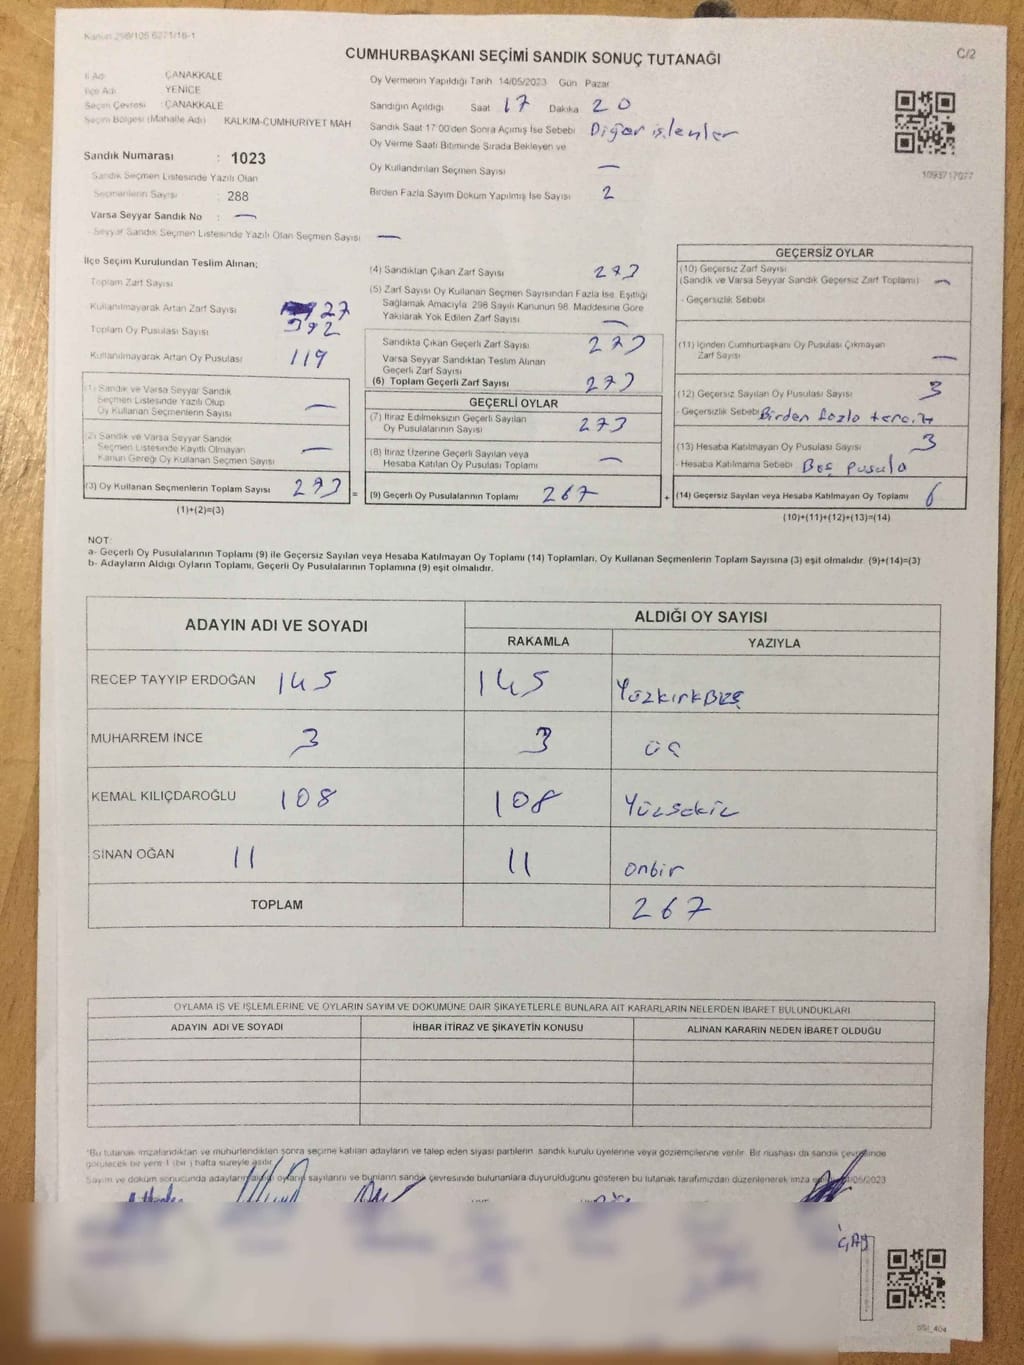 Kanun 298/105 6271/18-1
CUMHURBAŞKANI SEÇİMİ SANDIK SONUÇ TUTANAĞI
C/2
İl Adı ÇANAKKALE
İlçe Adı YENİCE
Seçim Çevresi ÇANAKKALE
Seçim Bölgesi (Mahalle Adı) KALKIM-CUMHURİYET MAH
Sandık Numarası : 1023
Sandık Seçmen Listesinde Yazılı Olan
Seçmenlerin Sayısı : 288
Varsa Seyyar Sandık No : —
Seyyar Sandık Seçmen Listesinde Yazılı Olan Seçmen Sayısı —
Oy Vermenin Yapıldığı Tarih 14/05/2023 Gün Pazar
Sandığın Açıldığı Saat 17 Dakika 20
Sandık Saat 17:00'den Sonra Açılmış İse Sebebi Diğer işlenler
Oy Verme Saati Bitiminde Sırada Bekleyen ve
Oy Kullandırılan Seçmen Sayısı —
Birden Fazla Sayım Döküm Yapılmış İse Sayısı 2
1093717077
İlçe Seçim Kurulundan Teslim Alınan;
Toplam Zarf Sayısı
Kullanılmayarak Artan Zarf Sayısı 27
Toplam Oy Pusulası Sayısı 392
Kullanılmayarak Artan Oy Pusulası 119
(1) Sandık ve Varsa Seyyar Sandık
Seçmen Listesinde Yazılı Olup
Oy Kullanan Seçmenlerin Sayısı —
(2) Sandık ve Varsa Seyyar Sandık
Seçmen Listesinde Kayıtlı Olmayan
Kanun Gereği Oy Kullanan Seçmen Sayısı —
(3) Oy Kullanan Seçmenlerin Toplam Sayısı 273 =
(1)+(2)=(3)
(4) Sandıktan Çıkan Zarf Sayısı 273
(5) Zarf Sayısı Oy Kullanan Seçmen Sayısından Fazla İse, Eşitliği
Sağlamak Amacıyla, 298 Sayılı Kanunun 98. Maddesine Göre
Yakılarak Yok Edilen Zarf Sayısı —
Sandıkta Çıkan Geçerli Zarf Sayısı 273
Varsa Seyyar Sandıktan Teslim Alınan
Geçerli Zarf Sayısı
(6) Toplam Geçerli Zarf Sayısı 273
GEÇERLİ OYLAR
(7) İtiraz Edilmeksizin Geçerli Sayılan
Oy Pusulalarının Sayısı 273
(8) İtiraz Üzerine Geçerli Sayılan veya
Hesaba Katılan Oy Pusulası Toplamı —
(9) Geçerli Oy Pusulalarının Toplamı 267 +
GEÇERSİZ OYLAR
(10) Geçersiz Zarf Sayısı
(Sandık ve Varsa Seyyar Sandık Geçersiz Zarf Toplamı) —
- Geçersizlik Sebebi
(11) İçinden Cumhurbaşkanı Oy Pusulası Çıkmayan
Zarf Sayısı —
(12) Geçersiz Sayılan Oy Pusulası Sayısı 3
- Geçersizlik Sebebi Birden fazla tercih
(13) Hesaba Katılmayan Oy Pusulası Sayısı 3
- Hesaba Katılmama Sebebi Boş pusula
(14) Geçersiz Sayılan veya Hesaba Katılmayan Oy Toplamı 6
(10)+(11)+(12)+(13)=(14)
NOT:
a- Geçerli Oy Pusulalarının Toplamı (9) ile Geçersiz Sayılan veya Hesaba Katılmayan Oy Toplamı (14) Toplamları, Oy Kullanan Seçmenlerin Toplam Sayısına (3) eşit olmalıdır. (9)+(14)=(3)
b- Adayların Aldığı Oyların Toplamı, Geçerli Oy Pusulalarının Toplamına (9) eşit olmalıdır.
ADAYIN ADI VE SOYADI ALDIĞI OY SAYISI
RAKAMLA YAZIYLA
RECEP TAYYIP ERDOĞAN 145 145 YüzkırkBEŞ
MUHARREM İNCE 3 3 üç
KEMAL KILIÇDAROĞLU 108 108 Yüzsekiz
SİNAN OĞAN 11 11 onbir
TOPLAM 267
OYLAMA İŞ VE İŞLEMLERİNE VE OYLARIN SAYIM VE DÖKÜMÜNE DAİR ŞİKAYETLERLE BUNLARA AİT KARARLARIN NELERDEN İBARET BULUNDUKLARI
ADAYIN ADI VE SOYADI İHBAR İTİRAZ VE ŞİKAYETİN KONUSU ALINAN KARARIN NEDEN İBARET OLDUĞU
*Bu tutanak imzalandıktan ve mühürlendikten sonra seçime katılan adayların ve talep eden siyasi partilerin sandık kurulu üyelerine veya gözlemcilerine verilir. Bir nüshası da sandık çevresinde
görülecek bir yere 1 (bir) hafta süreyle asılır.
Sayım ve döküm sonucunda adayların aldığı oyların sayılarını ve bunların sandık çevresinde bulunanlara duyurulduğunu gösteren bu tutanak tarafımızdan düzenlenerek imza /05/2023